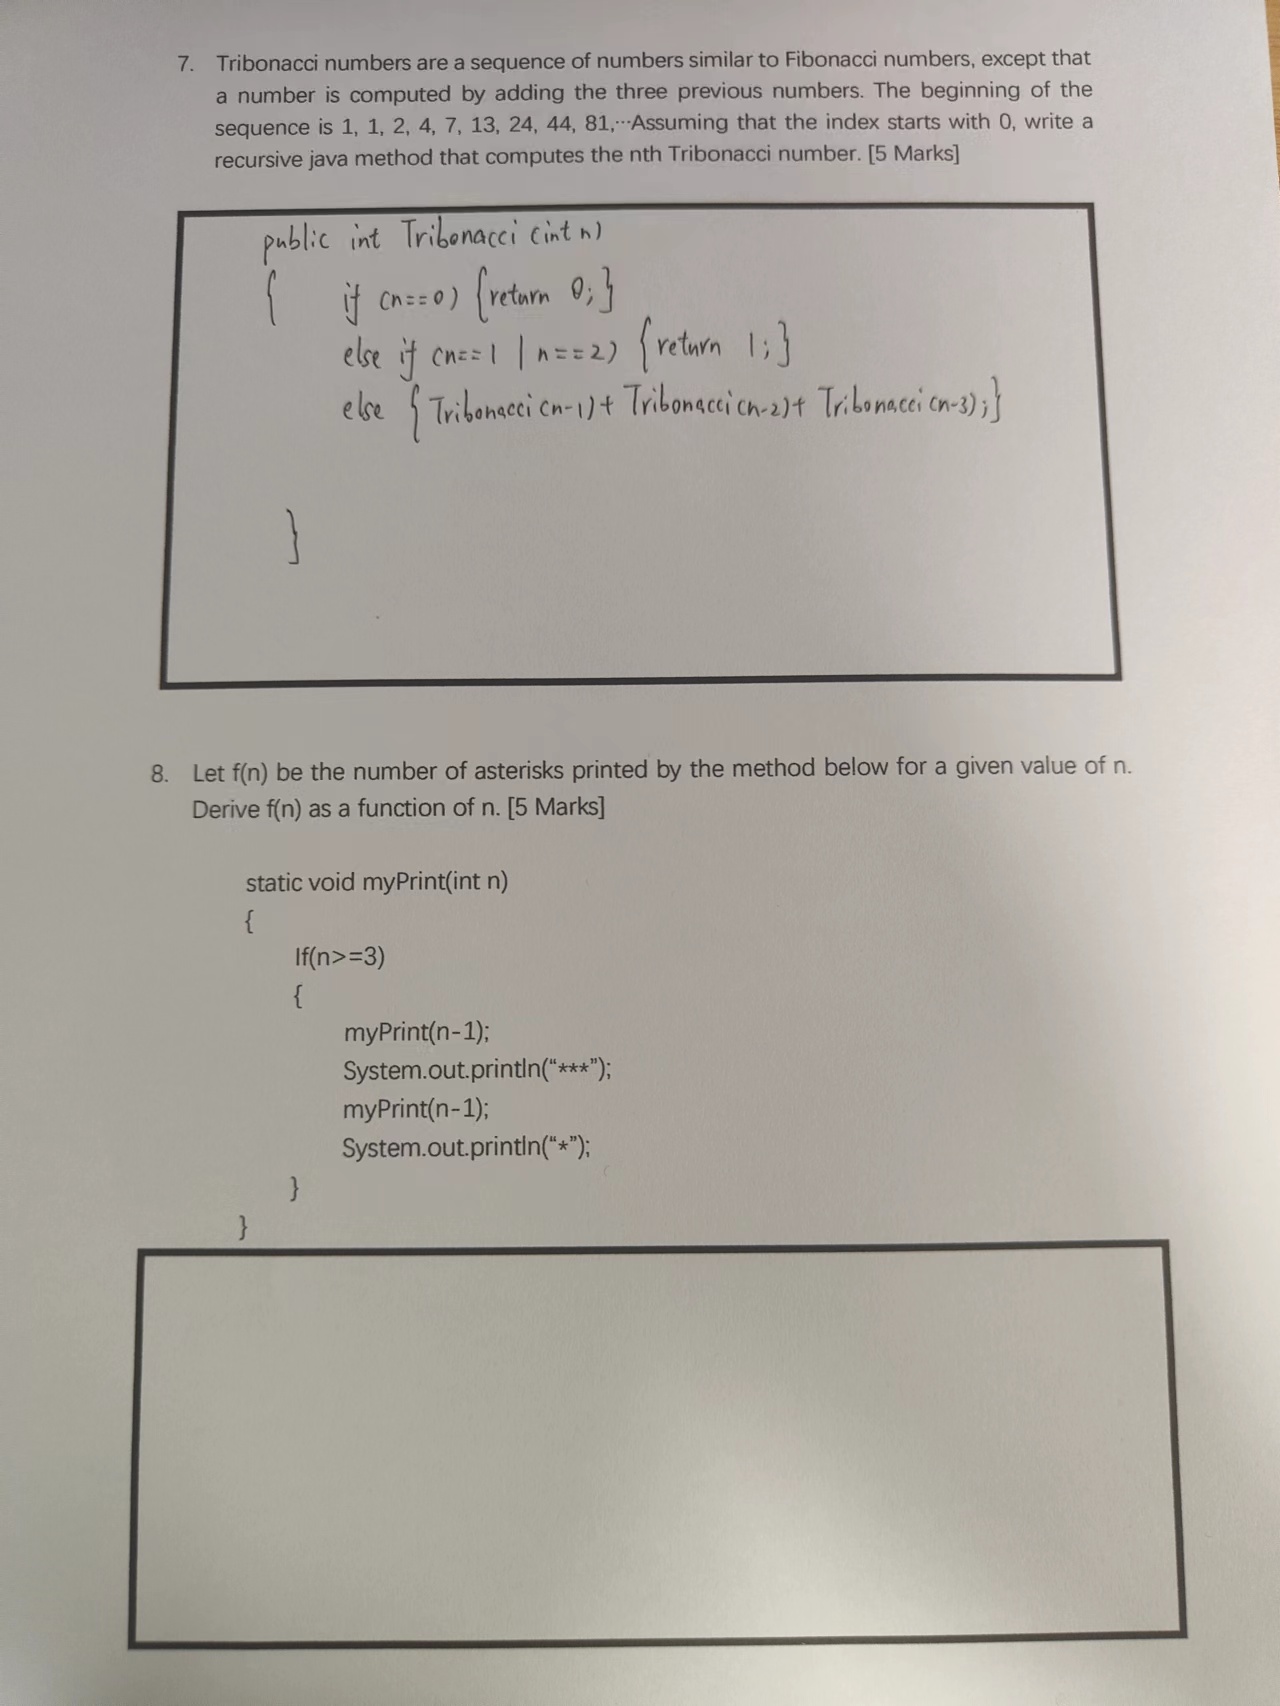 7. Tribonacci numbers are a sequence of numbers similar to Fibonacci numbers, except that
a number is computed by adding the three previous numbers. The beginning of the
sequence is 1, 1, 2, 4, 7, 13, 24, 44, 81,⋯Assuming that the index starts with 0, write a
recursive java method that computes the nth Tribonacci number. [5 Marks]
public int Tribonacci (int n)
{ if (n==0) {return 0;}
else if (n==1 | n==2) {return 1;}
else { Tribonacci (n-1)+ Tribonacci (n-2)+ Tribonacci (n-3);}
}
8. Let f(n) be the number of asterisks printed by the method below for a given value of n.
Derive f(n) as a function of n. [5 Marks]
static void myPrint(int n)
{
If(n>=3)
{
myPrint(n-1);
System.out.println(“***”);
myPrint(n-1);
System.out.println(“*”);
}
}